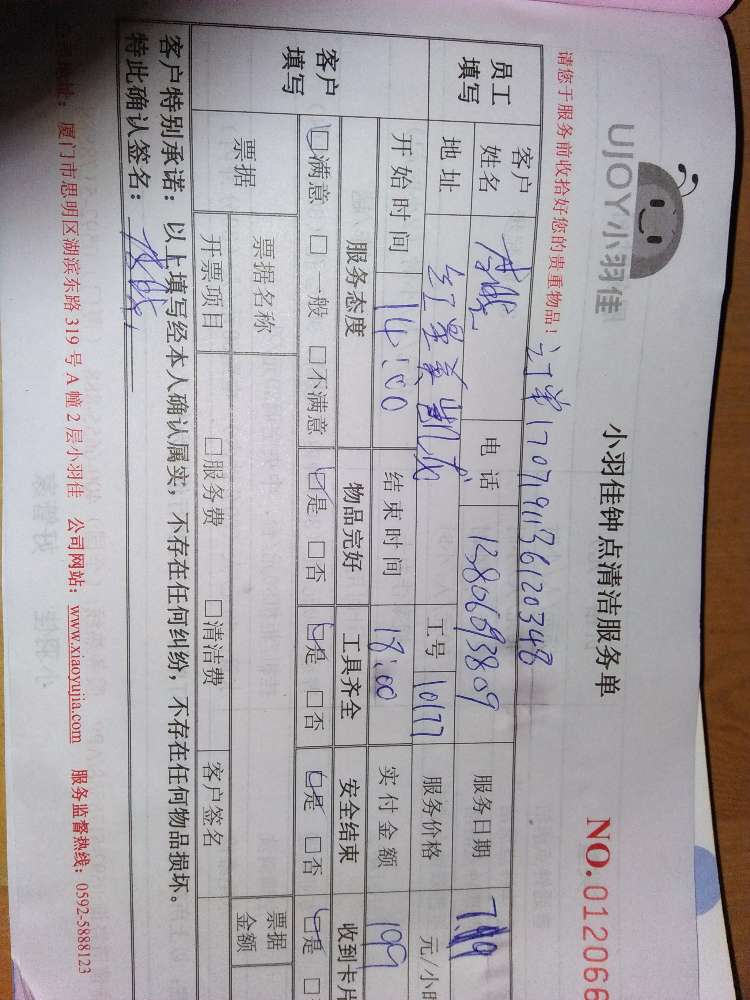 UJOY小羽佳
小羽佳钟点清洁服务单
NO.012066
请您于服务前收拾好您的贵重物品!
订单1707191136120348
员工填写
客户姓名 电话 13806093809 服务日期
地址 红星美凯龙 工号 10177 服务价格 元/小时
开始时间 14:00 结束时间 18:00 实付金额 199
客户填写
服务态度 物品完好 工具齐全 安全结束 收到卡片
☑满意 □一般 □不满意 ☑是 □否 ☑是 □否 ☑是 □否 ☑是 □
票据 票据名称 票据金额
开票项目 □服务费 □清洁费 客户签名
客户特别承诺:以上填写经本人确认属实,不存在任何纠纷,不存在任何物品损坏。
特此确认签名:
公司地址:厦门市思明区湖滨东路319号A幢2层小羽佳 公司网站:www.xiaoyujia.com 服务监督热线:0592-5888123